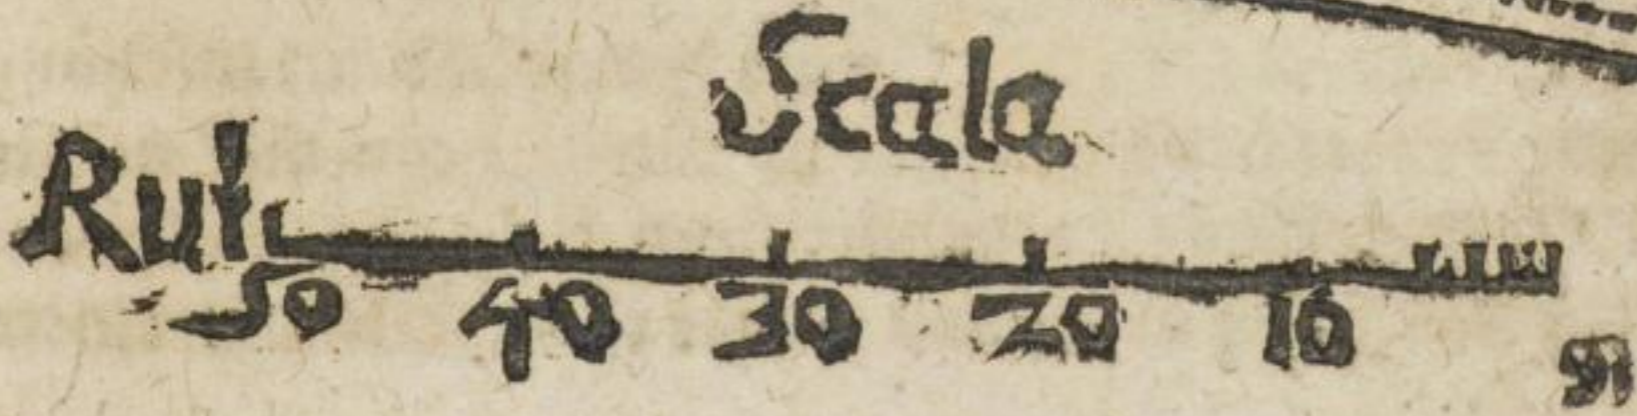 Scala
Rut
50 40 30 20 10